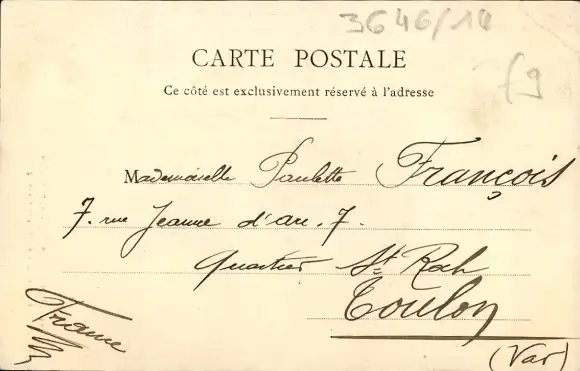 3646/14
CARTE POSTALE
f9
Ce côté est exclusivement réservé à l'adresse
Mademoiselle Paulette François
7. rue Jeanne d'arc. 7.
Quartier St Roch
Toulon
France
(Var)